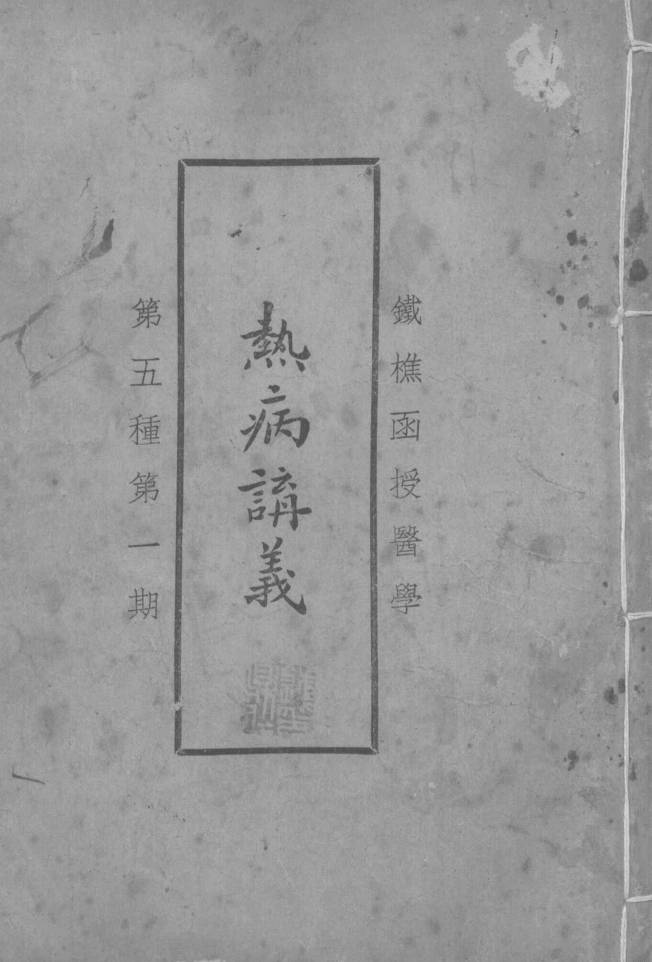 鐵樵函授醫學
熱病講義
第五種第一期